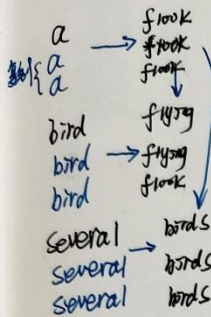 a → flock
a flock
a flock
bird flying
bird → flying
bird flock
several → birds
several birds
several birds